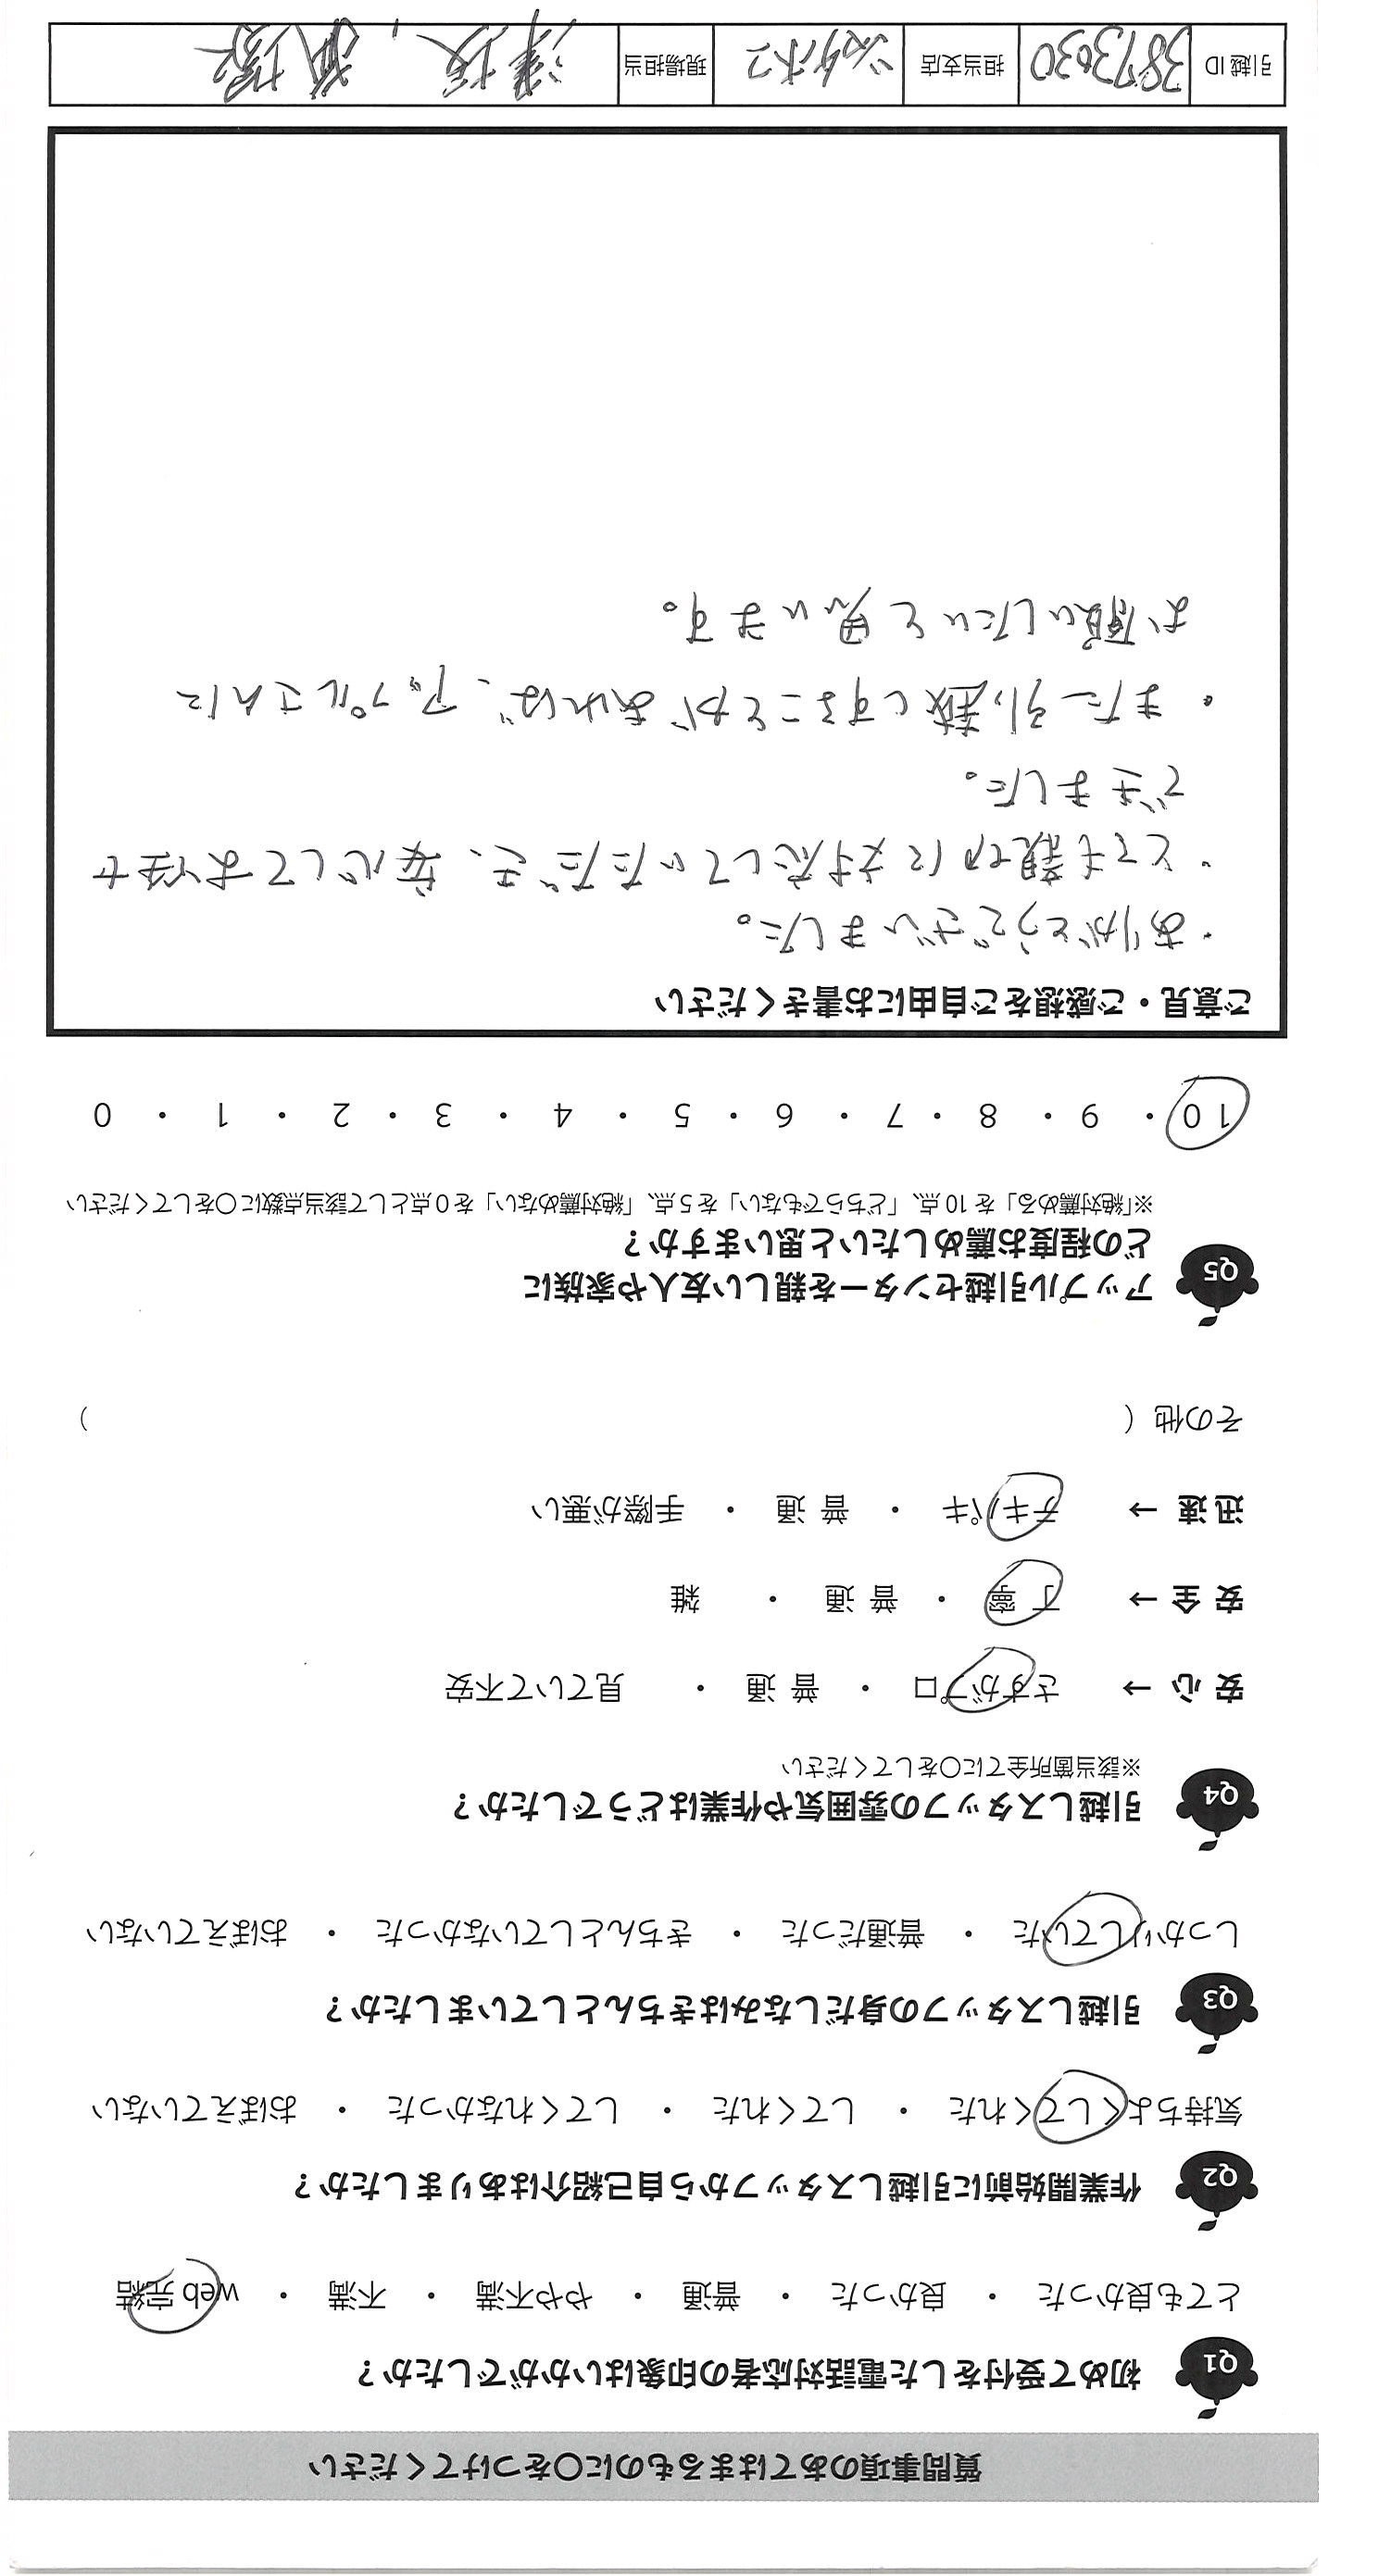 質問事項のあてはまるものに〇をつけてください
Q1 初めて受付をした電話対応者の印象はいかがでしたか？
とても良かった ・ 良かった ・ 普通 ・ やや不満 ・ 不満 ・ web 完結
Q2 作業開始前に引越しスタッフから自己紹介はありましたか？
気持ちよくしてくれた ・ してくれた ・ してくれなかった ・ おぼえていない
Q3 引越しスタッフの身だしなみはきちんとしていましたか？
しっかりしていた ・ 普通だった ・ きちんとしていなかった ・ おぼえていない
Q4 引越しスタッフの雰囲気や作業はどうでしたか？
※該当箇所全てに〇をしてください
安 心 → さすがプロ ・ 普 通 ・ 見ていて不安
安 全 → 丁 寧 ・ 普 通 ・ 雑
迅 速 → テキパキ ・ 普 通 ・ 手際が悪い
その他（ ）
Q5 アップル引越センターを親しい友人や家族に
どの程度お薦めしたいと思いますか？
※「絶対薦める」を 10 点、「どちらでもない」を 5 点、「絶対薦めない」を 0 点として該当点数に〇をしてください
10 ・ 9 ・ 8 ・ 7 ・ 6 ・ 5 ・ 4 ・ 3 ・ 2 ・ 1 ・ 0
ご意見・ご感想をご自由にお書きください
・ありがとうございました。
・とても親切に対応していただき、安心してお任せ
できました。
・また引越しすることがあれば、アップルさんに
お願いしたいと思います。
引越 ID 3873030 担当支店 現場担当